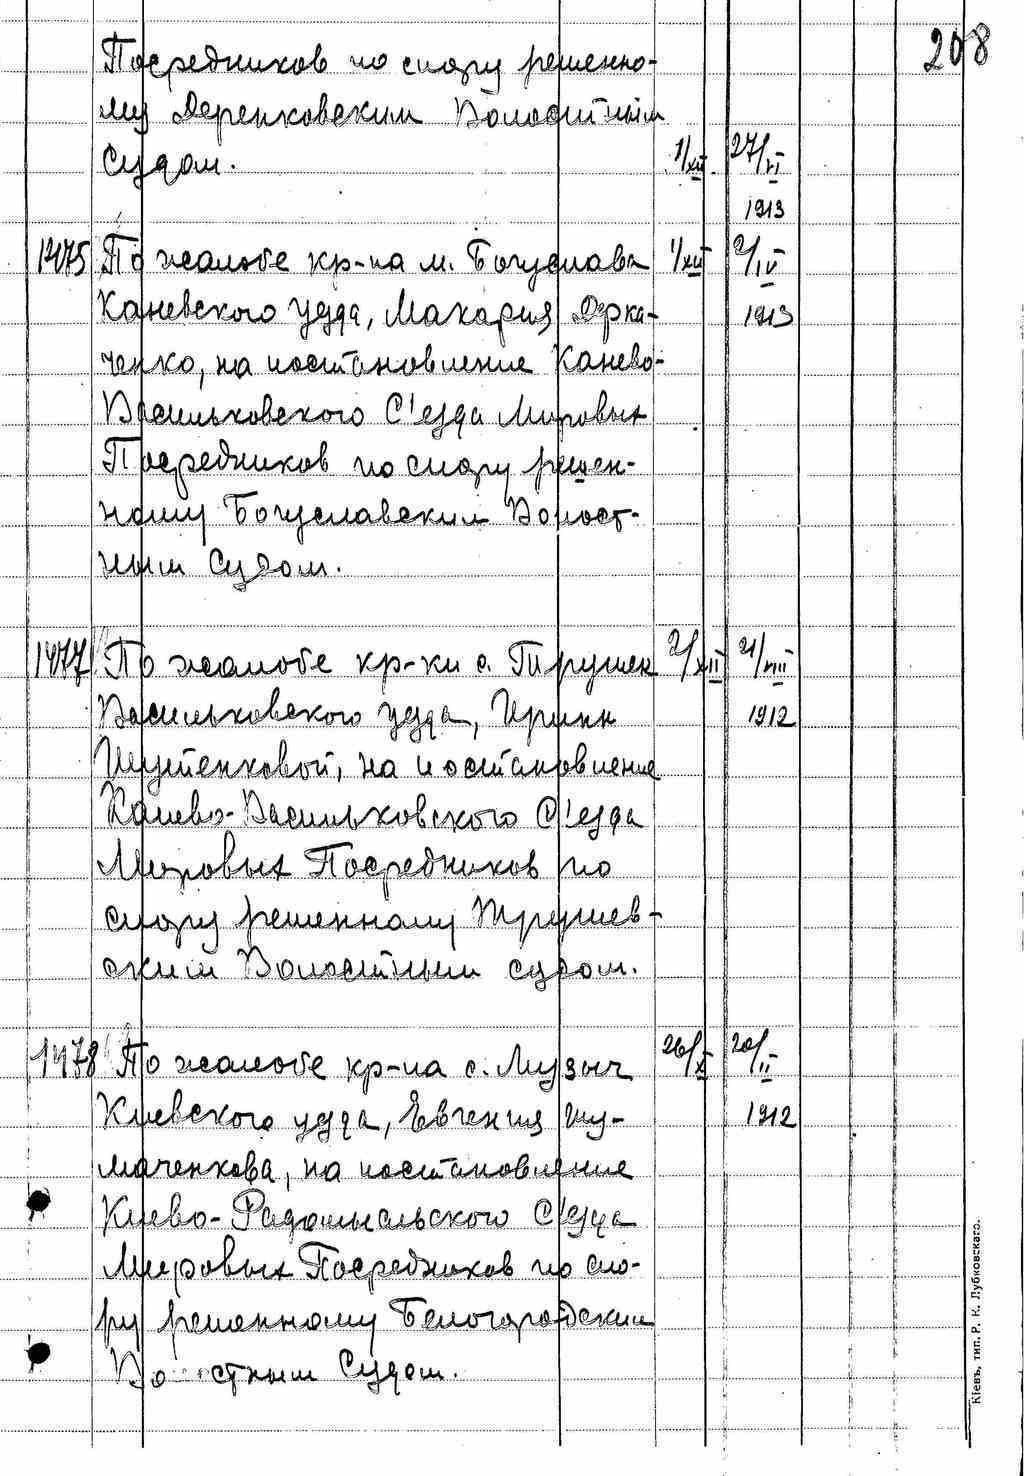 208
Посредников по спору решенно-
му Деренковским Волостным
Судом. 1/XII 27/VI
1913
1475 По жалобе кр-на м. Богуслава 1/XII 2/IV
Каневского уезда, Макария Дерка- 1913
ченко, на постановление Канево-
Васильковского С'езда Мировых
Посредников по спору решен-
ному Богуславским Волост-
ным Судом.
1477 По жалобе кр-ки с. Трушек 2/XII 21/VIII
Васильковского уезда, Ирины 1912
Шутенковой, на постановление
Канево-Васильковского С'езда
Мировых Посредников по
спору решенному Трушев-
ским Волостным судом.
1478 По жалобе кр-на с. Музыч 26/X 20/II
Киевского уезда, Евгения Шу- 1912
маченкова, на постановление
Киево-Радомысльского С'езда
Мировых Посредников по спо-
ру решенному Белогородским
Волостным Судом.
Кіевъ, тип. Р. К. Лубковскаго.